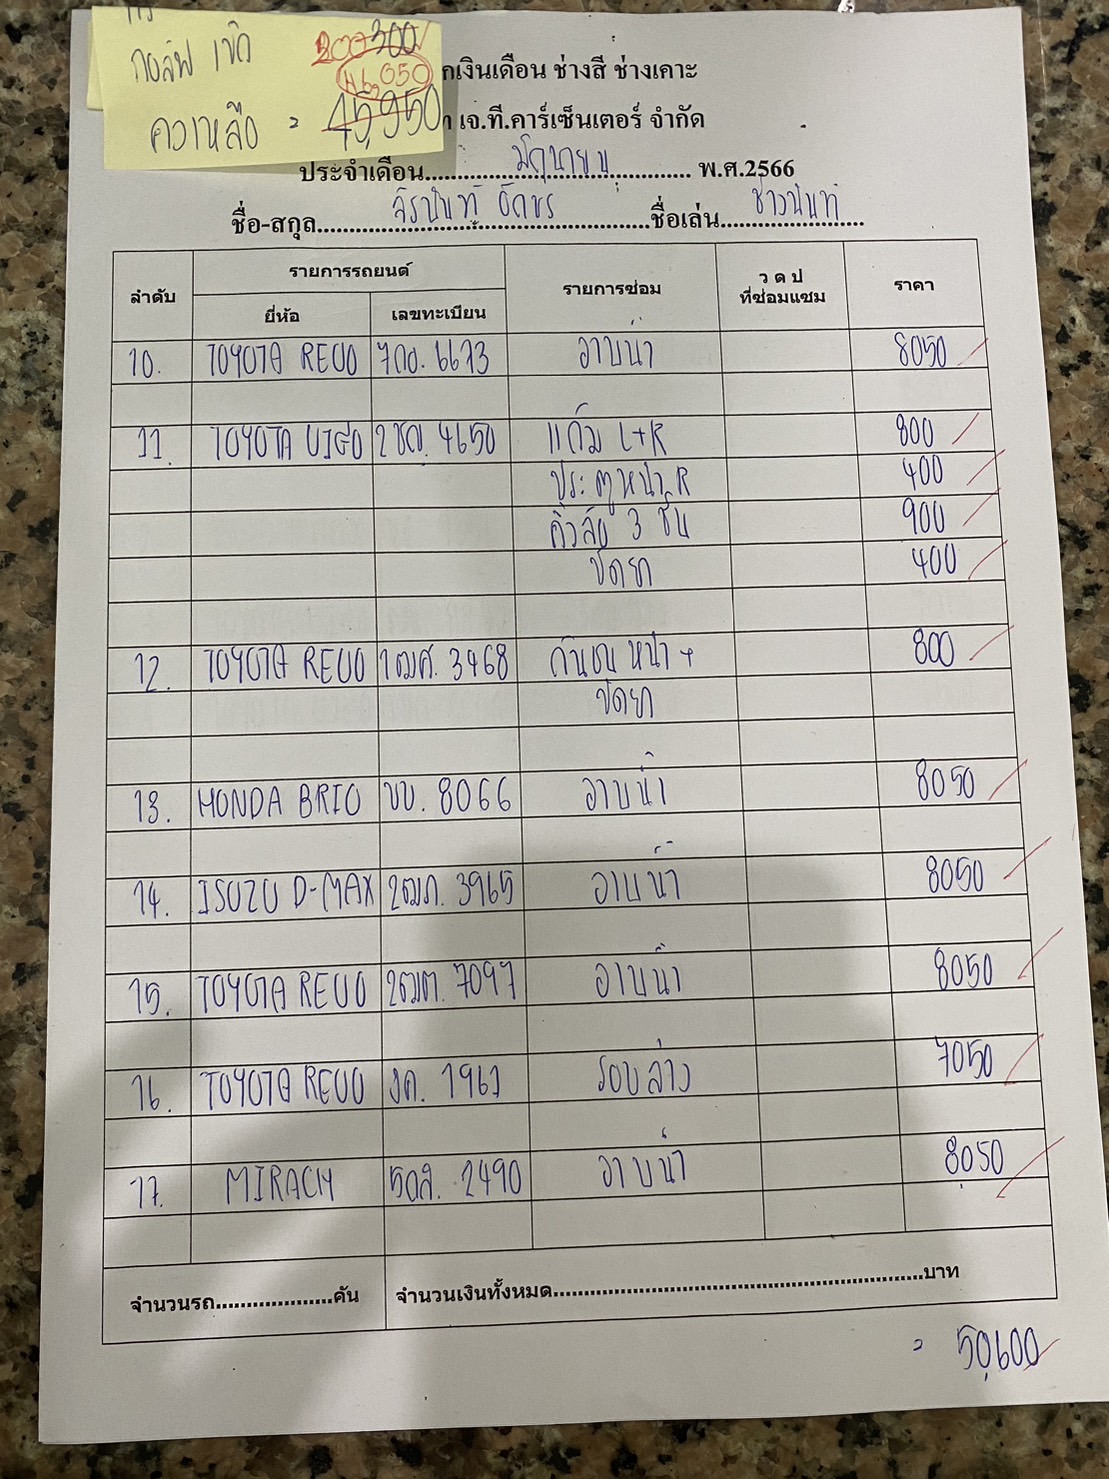 กอล์ฟ เขิด 200 300
46,050
ควาหลือ = 45,950
เงินเดือน ช่างสี ช่างเคาะ
เจ.ที.คาร์เซ็นเตอร์ จำกัด
ประจำเดือน มิถุนายน พ.ศ.2566
ชื่อ-สกุล จิรนันท์ ชื่อเล่น ช่างนันท์
ลำดับ รายการรถยนต์ รายการซ่อม ว ด ป ที่ซ่อมแซม ราคา
ยี่ห้อ เลขทะเบียน
10. TOYOTA REVO 7กอ. 6673 อาบน้ำ 8050
11. TOYOTA VIGO 2ชญ. 4650 แก้ม L+R 800
ประตูหน้า R 400
คิ้วล้อ 3 ชิ้น 900
ขัดยา 400
12. TOYOTA REVO 1ฒศ. 3468 กันชนหน้า + 800
ขัดยา
13. HONDA BRIO ขบ. 8066 อาบน้ำ 8050
14. ISUZU D-MAX 2ฒภ. 3965 อาบน้ำ 8050
15. TOYOTA REVO 2ฒต. 7097 อาบน้ำ 8050
16. TOYOTA REVO งค. 1961 รอบล่าง 7050
17. MIRACH 5กส. 2490 อาบน้ำ 8050
จำนวนรถ....................คัน จำนวนเงินทั้งหมด..............................................................บาท
= 50,600